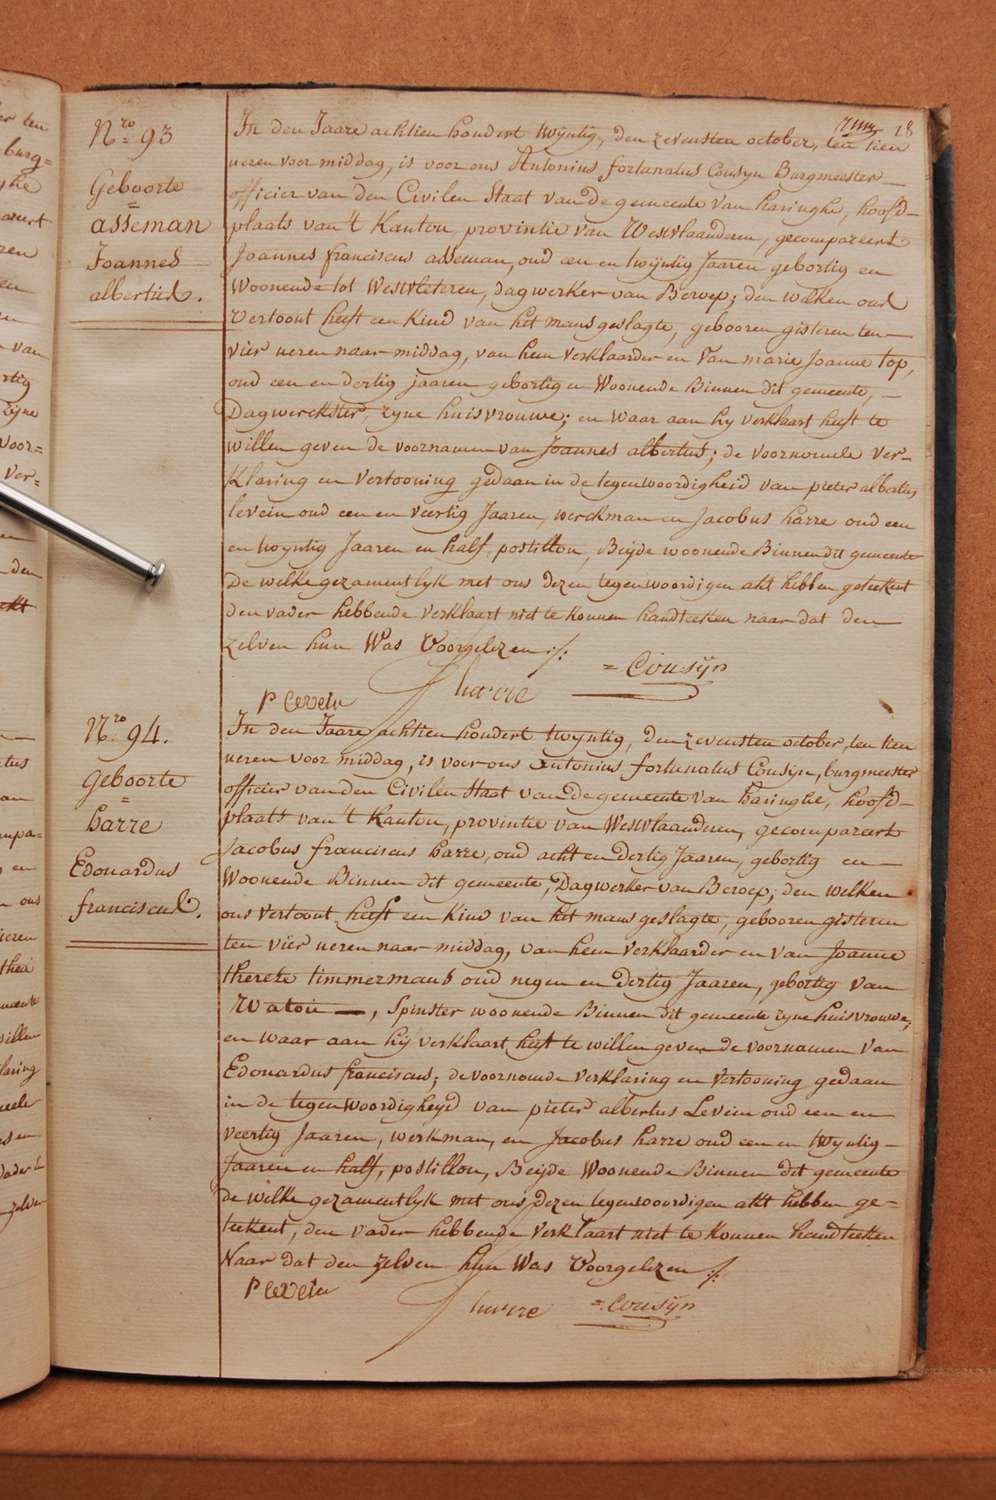 28
Nro 93
Geboorte
=
asseman
Joannes
albertus.
In den Jaare achtien hondert twijntig, den zevensten october, ten tien
ueren voor middag, is voor ons Antonius fortunatus Cousyn Burgmeester
officier van den Civilen Staat van de gemeente van haringhe, hoofd-
plaats van 't Kanton, provintie van Westvlaanderen, gecompareert
Joannes franciscus asseman, oud een en twijntig Jaaren gebortig en
Woonende tot Westvleteren, dagwerker van Beroep; den welken ons
Vertoont heeft een Kind van het mansgeslagte, gebooren gisteren ten
vier ueren naar middag, van hem Verklaarder en Van marie Joanne top,
oud een en dertig jaaren gebortig en Woonende Binnen dit gemeente,
Dagwerckster, zyne huisvrouwe; en waar aan hy verklaart heeft te
willen geven de voornamen van Joannes albertus; de voornoemde ver-
Klaring en Vertooning gedaan in de tegenwoordigheid van pieter albertus
levein oud een en veertig Jaaren, werckman en Jacobus harre oud een
en twyntig Jaaren en half, postillon, Beijde woonende Binnen dit gemeente
De welke gezamentlyk met ons dezen tegenwoordigen akt hebben geteekent
den vader hebbende verklaart niet te konnen handteeken naar dat den
zelven hun Was Voorgelezen ./:
P Levein
J harre
= Cousijn
Nro 94.
Geboorte
=
barre
Edouardus
franciscus.
In den Jaare achtien hondert twijntig, den zevensten october, ten tien
ueren voor middag, is voor ons antonius fortunatus Cousyn, burgmeester
officier van den Civilen Staat van de gemeente Van haringhe, hoofd-
plaats van 't Kanton, provintie van Westvlaanderen, gecompareert
Jacobus franciscus barre, oud acht en dertig Jaaren, gebortig en
Woonende Binnen dit gemeente, Dagwerker van Beroep; den welken
ons vertoont heeft een Kind van het mansgeslagte, gebooren gisteren
ten vier ueren naar middag, van hem Verklaarder en van Joanne
therese timmermans oud negen en dertig Jaaren, gebortig van
Watou —, Spinster woonende Binnen dit gemeente zyne huisvrouwe;
en waar aan hij verklaart heeft te willen geven de voornamen van
Edouardus franciscus; de voornoemde verklaring en vertooning gedaan
in de tegenwoordigheyd van pieter albertus Levein oud een en
veertig Jaaren, werkman, en Jacobus harre oud een en twyntig
Jaaren en half, postillon, Beijde Woonende Binnen dit gemeente
de welke gezamentlyk met ons dezen tegenwoordigen akt hebben ge-
teekent, den vader hebbende verklaart niet te konnen handteeken
Naar dat den zelven hun Was Voorgelezen ./:
P Levein
J harre
= Cousijn